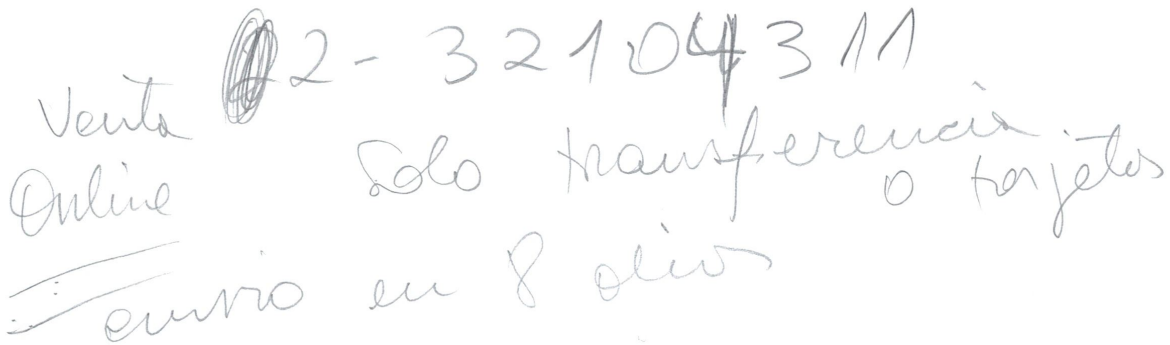 2-32104311
Venta
Online
Solo transferencia
o tarjetas
envio en 8 dias